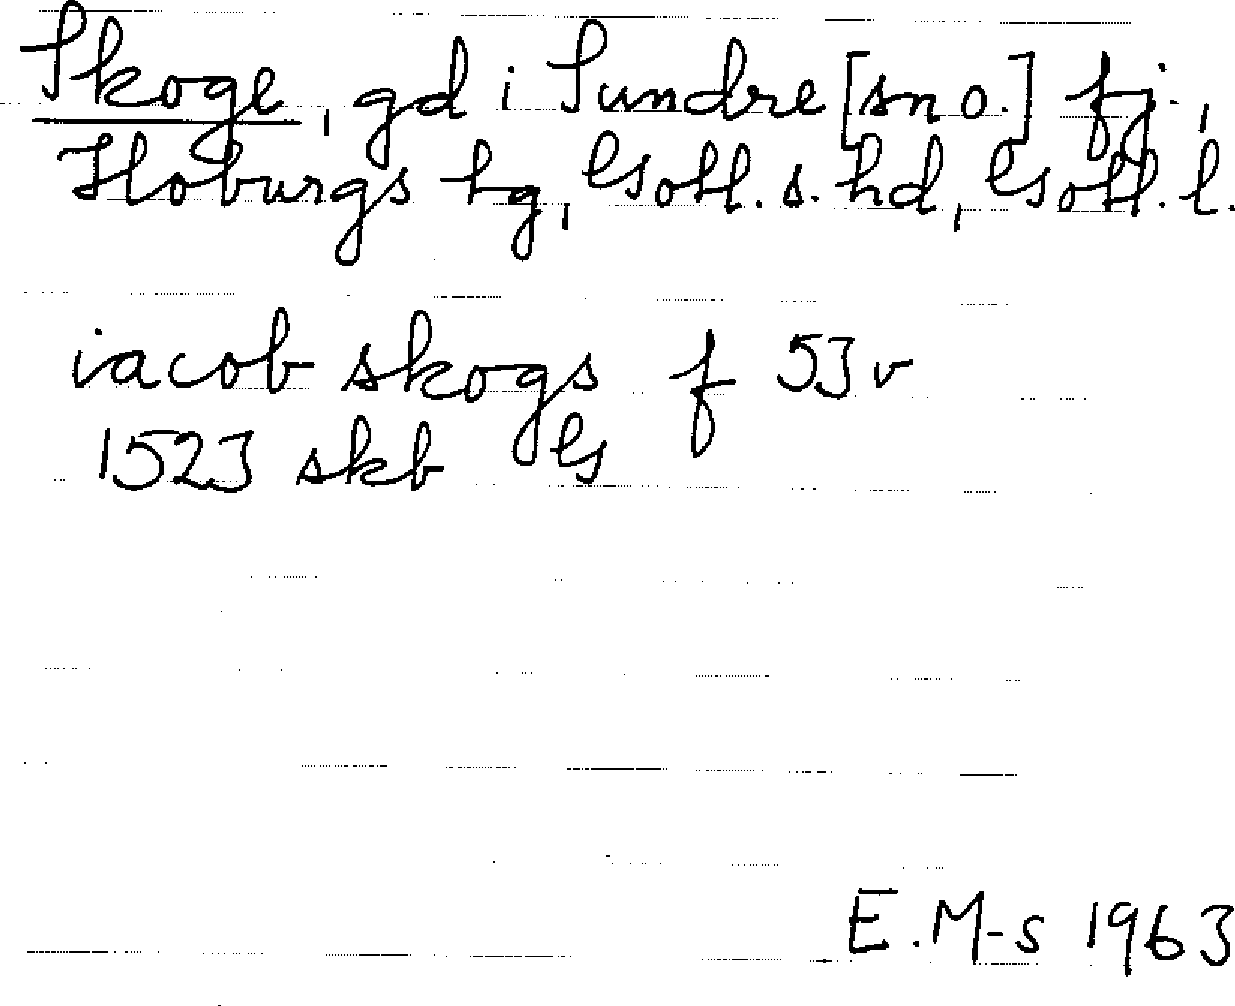 Skoge, gd i Sundre [sn o.] fj.,
Hoburgs tg, Gotl. s. hd, Gotl. l.
iacob skogs f 53 v
1523 skb G
E.M-s 1963